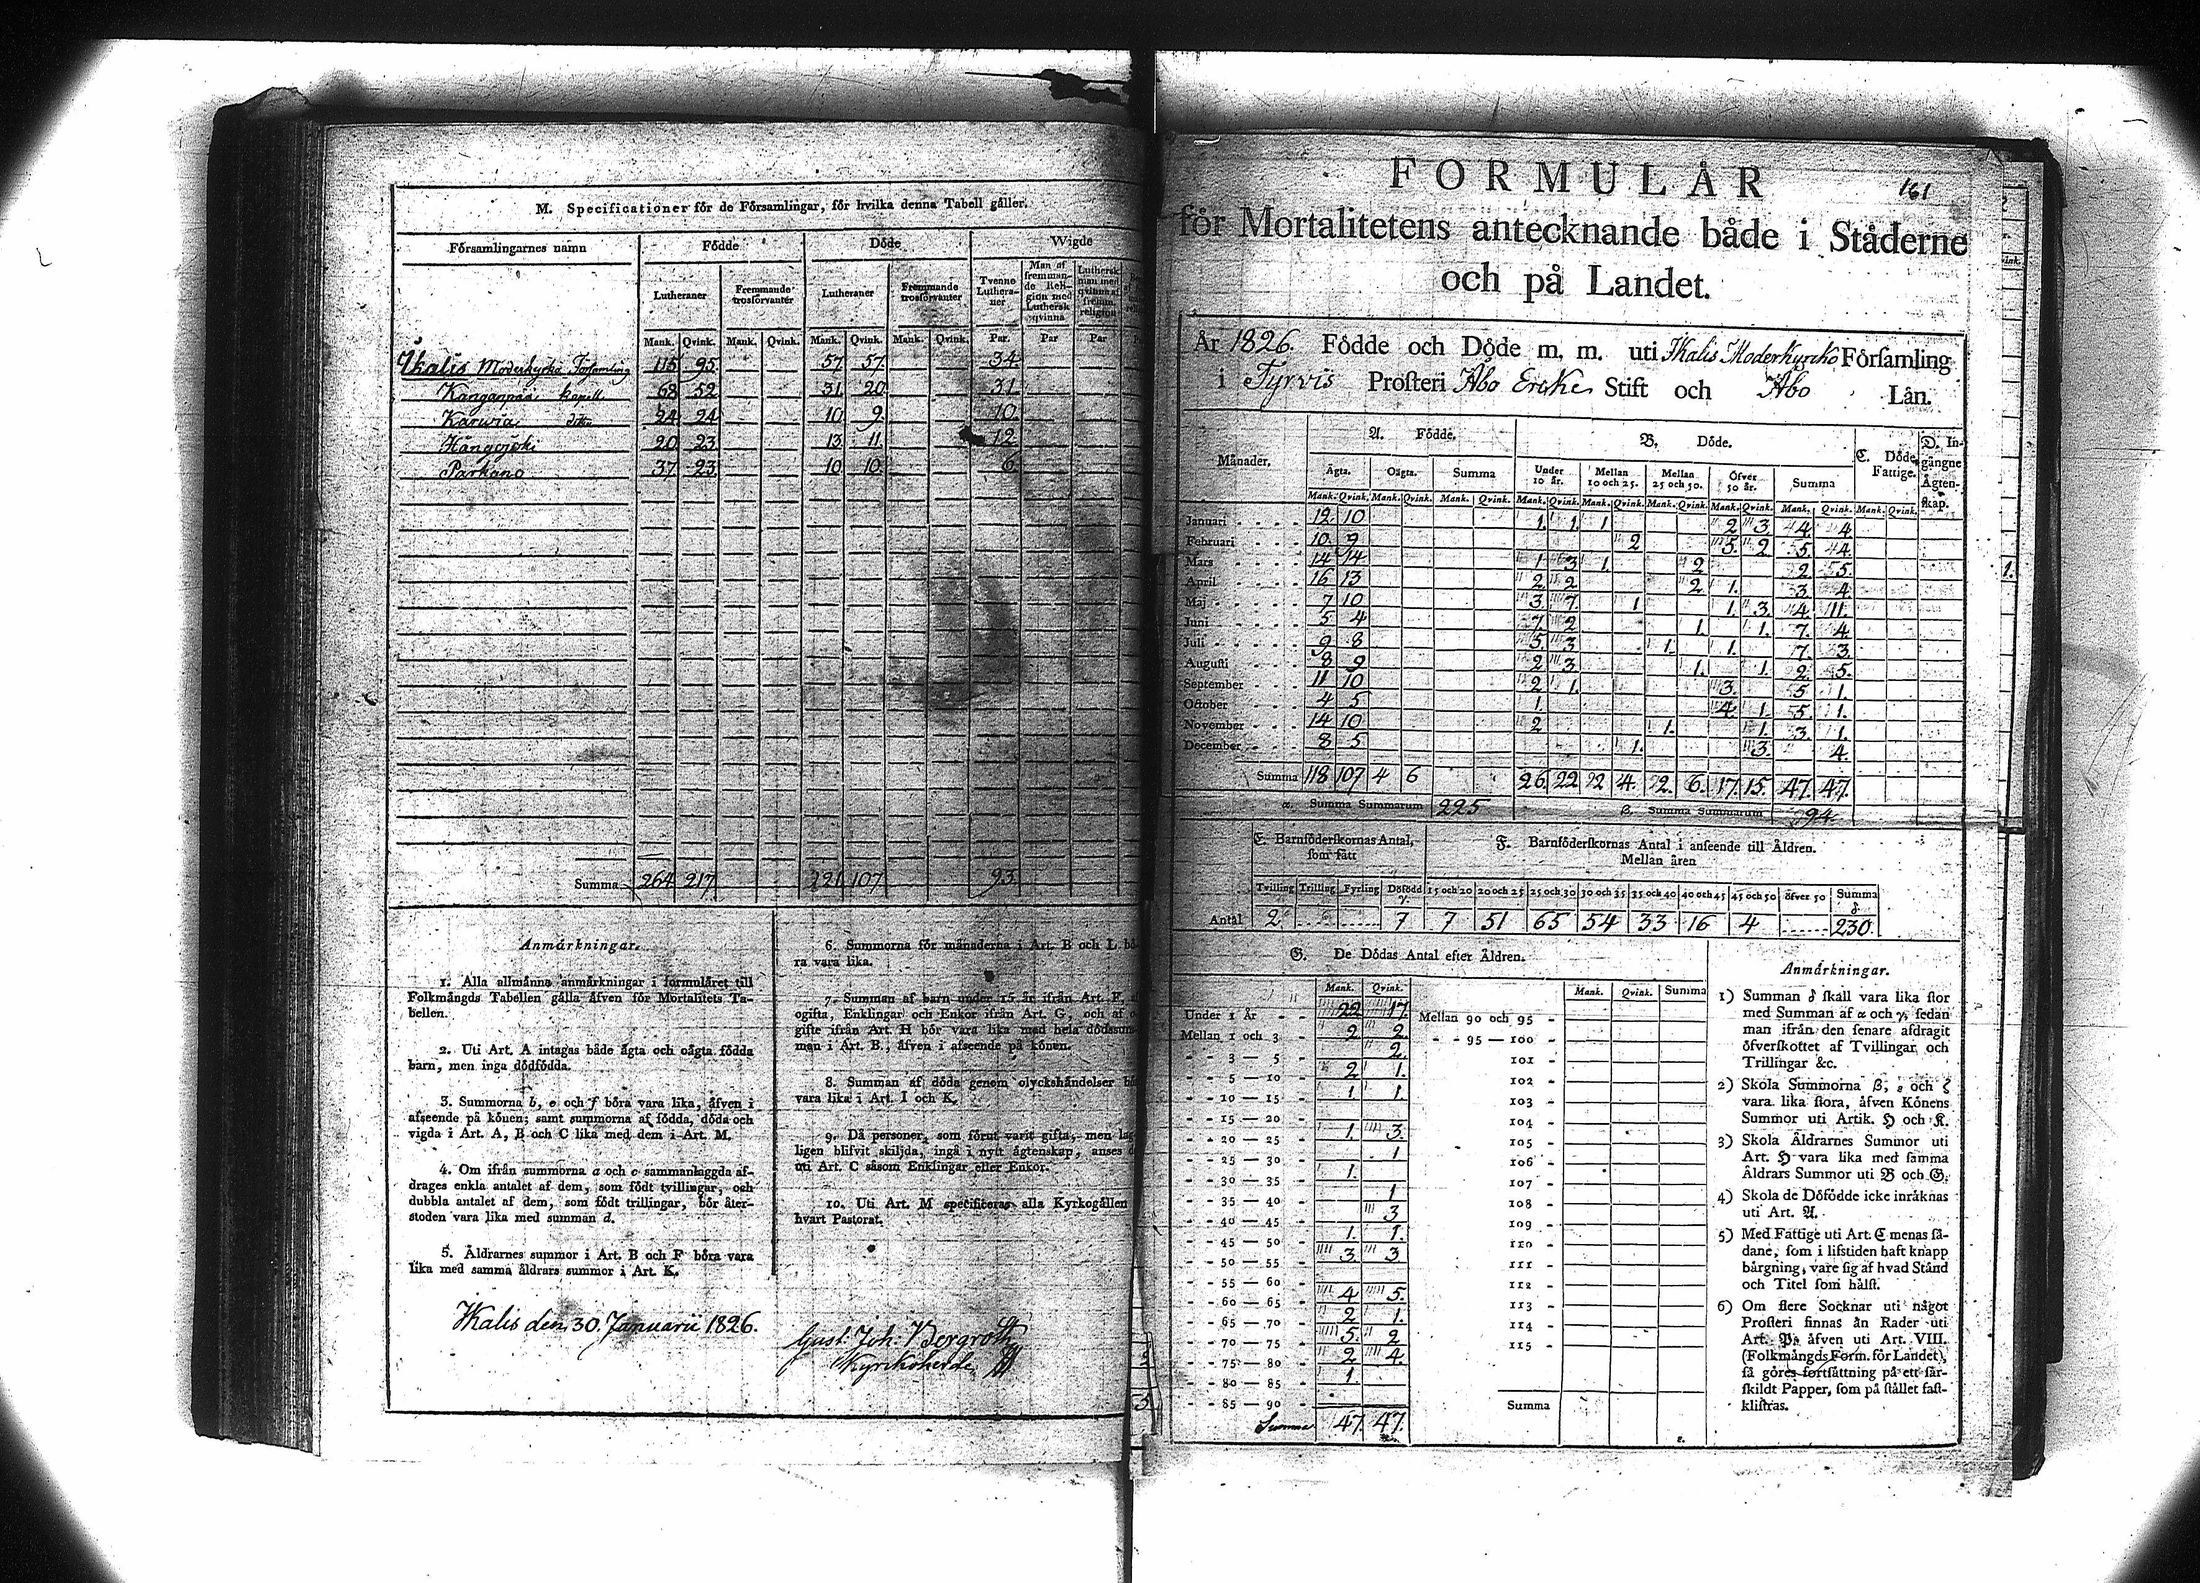 M. Specificationer för de Församlingar, för hvilka denna Tabell gäller.
Församlingarnes namn Födde Döde Wigde
Lutheraner Fremmande trosförvanter Lutheraner Fremmande trosförvanter Tvenne Lutheraner Man af fremmande Religion med Luthersk qvinna Luthersk man med qvinna af fremm. religion
Mank. Qvink. Mank. Qvink. Mank. Qvink. Mank. Qvink. Par. Par Par
Ikalis Moderkyrko Församling 115 95 57 57 34
Kanganpää kapell 68 52 31 20 31
Karvia ditto 24 24 10 9 10
20 23 13 11 12
Parkano 37 23 10 10 6
Summa 264 217 121 107 93
Anmärkningar.
1. Alla allmänna anmärkningar i formuläret till
Folkmängds Tabellen gälla äfven för Mortalitets Ta-
bellen.
2. Uti Art. A intagas både ägta och oägta födda
barn, men inga dödfödda.
3. Summorna b, e och f böra vara lika, äfven i
afseende på könen; samt summorna af födda, döda och
vigda i Art. A, B och C lika med dem i Art. M.
4. Om ifrån summorna a och c sammanlaggda af-
drages enkla antalet af dem, som födt tvillingar, och
dubbla antalet af dem, som födt trillingar, bör åter-
stoden vara lika med summan d.
5. Åldrarnes summor i Art. B och F böra vara
lika med samma åldrars summor i Art. K.
6. Summorna för månaderna i Art. B och L bö-
ra vara lika.
7. Summan af barn under 15 år ifrån Art. F,
ogifta, Enklingar och Enkor ifrån Art. G, och af
gifte ifrån Art. H bör vara lika med hela dödssum-
man i Art. B., äfven i afseende på könen.
8. Summan af döda genom olyckshändelser
vara lika i Art. I och K.
9. Då personer, som förut varit gifta, men
ligen blifvit skiljda, ingå i nytt ägtenskap, anses
uti Art. C såsom Enklingar eller Enkor.
10. Uti Art. M specificeras alla Kyrkogällen
hvart Pastorat.
Ikalis den 30. Januarii 1826.
Gust: Joh: Bergroth
Kyrkoherde
161
FORMULÄR
för Mortalitetens antecknande både i Städerne
och på Landet.
År 1826. Födde och Döde m. m. uti Ikalis Moderkyrko Församling
i Tyrvis Prosteri Åbo Erke Stift och Åbo Län.
Månader. A. Födde. B. Döde. C. Döde Fattige. D. Ingångne Ägtenskap.
Ägta. Oägta. Summa Under 10 år. Mellan 10 och 25. Mellan 25 och 50. Öfver 50 år. Summa
Mank. Qvink. Mank. Qvink. Mank. Qvink. Mank. Qvink. Mank. Qvink. Mank. Qvink. Mank. Qvink. Mank. Qvink. Mank. Qvink.
Januari 12 10 1. 1. 1 2 3 4 4
Februari 10 9 2 5. 2 5. 4.
Mars 14 14 1 3 1. 2 2. 5.
April 16 13 2 2 2 1. 3 4
Maj 7 10 3. 7. 1 1. 3. 4. 11.
Juni 5 4 7. 2 1. 1. 7. 4
Juli 9 8 5. 3 1. 1. 7. 3.
Augusti 8 9 2 3 1. 1 2. 5.
September 11 10 2 1. 3. 5 1.
October 4 5 1. 4. 1 5. 1.
November 14 10 2 1. 1. 3. 1.
December 8 5 1. 3. 4.
Summa 118 107 4 6 26 22 2 4. 2. 6. 17. 15. 47. 47.
α. Summa Summarum 225 β. Summa Summarum 94.
E. Barnföderskornas Antal, som fått
F. Barnföderskornas Antal i anseende till Åldren.
Mellan åren
Tvilling Trilling Fyrling Dödfödd γ. 15 och 20 20 och 25 25 och 30 30 och 35 35 och 40 40 och 45 45 och 50 öfver 50 Summa δ
Antal 2 7 7 51 65 54 33 16 4 230.
G. De Dödas Antal efter Åldren.
Mank. Qvink. Mank. Qvink. Summa
Under 1 År 22 17. Mellan 90 och 95
Mellan 1 och 3 2 2. 95 — 100
3 — 5 2. 101
5 — 10 2 1. 102
10 — 15 1 1. 103
15 — 20 104
20 — 25 1. 3. 105
25 — 30 1 106
30 — 35 1. 107
35 — 40 1 108
40 — 45 3 109
45 — 50 1. 1. 110
50 — 55 3 3 111
55 — 60 112
60 — 65 4 5. 113
65 — 70 2 1. 114
70 — 75 5. 2 115
75 — 80 2 4.
80 — 85 1
85 — 90
Summa 47. 47. Summa
Anmärkningar.
1) Summan δ skall vara lika stor
med Summan af α och γ, sedan
man ifrån den senare afdragit
öfverskottet af Tvillingar och
Trillingar &c.
2) Skola Summorna β, ε och ζ
vara lika stora, äfven Könens
Summor uti Artik. H och K.
3) Skola Åldrarnes Summor uti
Art. H vara lika med samma
Åldrars Summor uti B och G.
4) Skola de Döfödde icke inräknas
uti Art. A.
5) Med Fattige uti Art. C menas så-
dane, som i lifstiden haft knapp
bärgning, vare sig af hvad Stånd
och Titel som hälst.
6) Om flere Socknar uti något
Prosteri finnas än Rader uti
Art. P, äfven uti Art. VIII.
(Folkmängds Form. för Landet),
så göres fortsättning på ett sär-
skildt Papper, som på stället fast-
klistras.